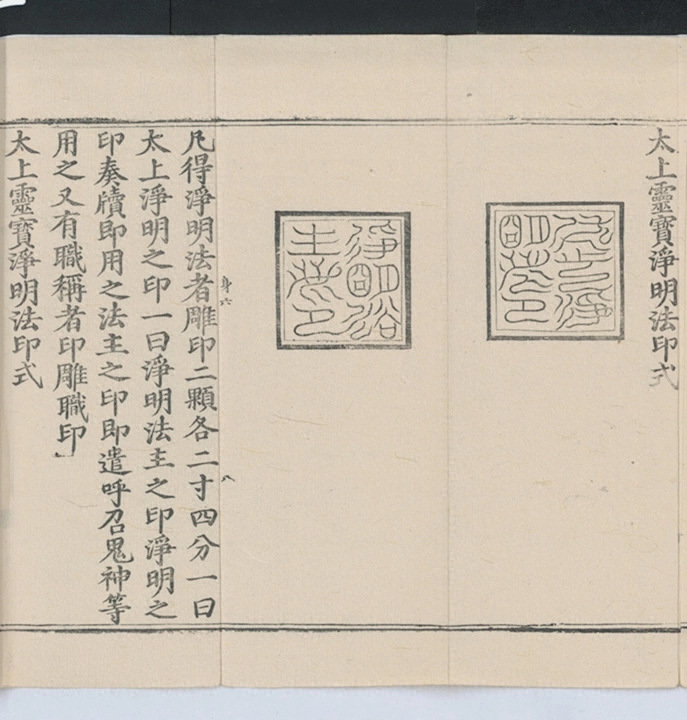 太上靈寶淨明法印式
太上淨
明之印
淨明法
主之印
身六
八
凡得淨明法者雕印二顆各二寸四分一曰
太上淨明之印一曰淨明法主之印淨明之
印奏牘即用之法主之印即遣呼召鬼神等
用之又有職稱者印雕職印
太上靈寶淨明法印式